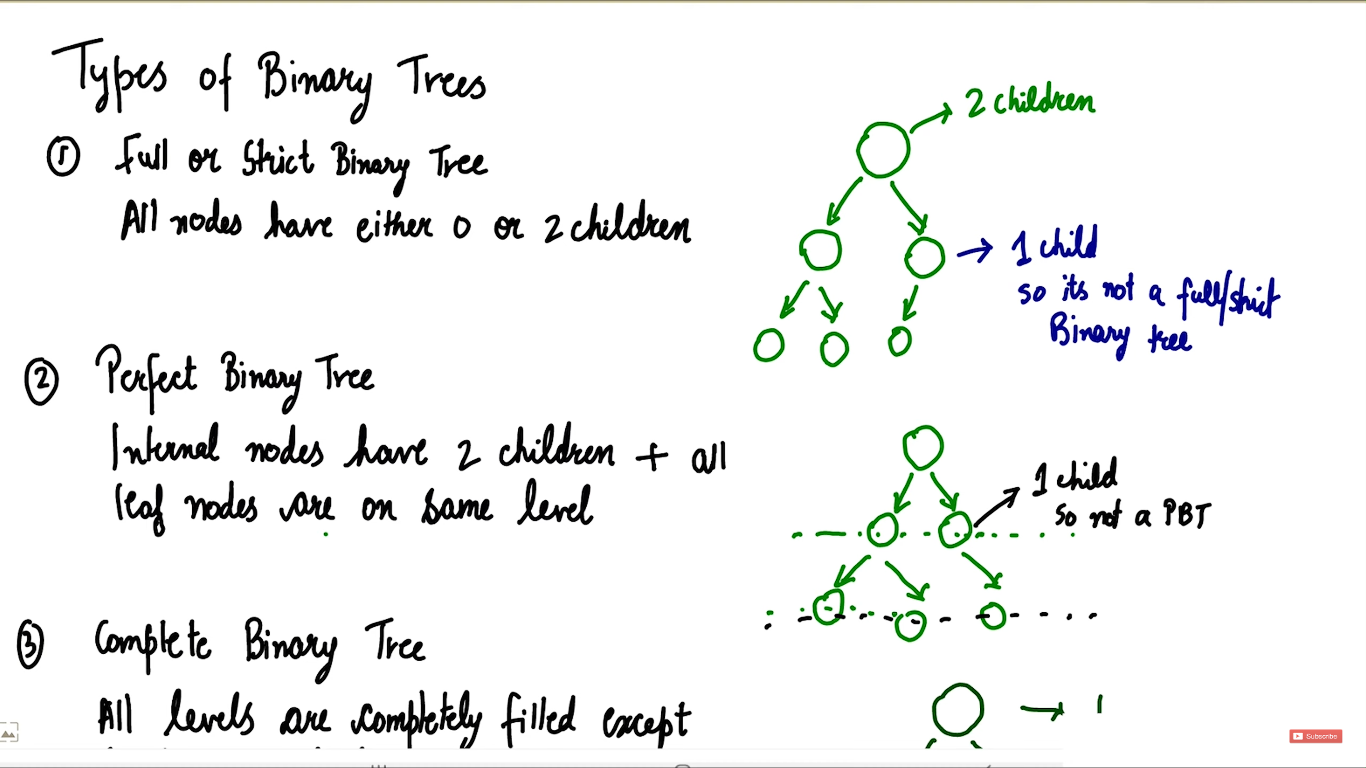 Types of Binary Trees
① Full or Strict Binary Tree
All nodes have either 0 or 2 children
2 children
1 child
so its not a full/strict
Binary tree
② Perfect Binary Tree
Internal nodes have 2 children + all
leaf nodes are on same level
1 child
so not a PBT
③ Complete Binary Tree
All levels are completely filled except
Subscribe